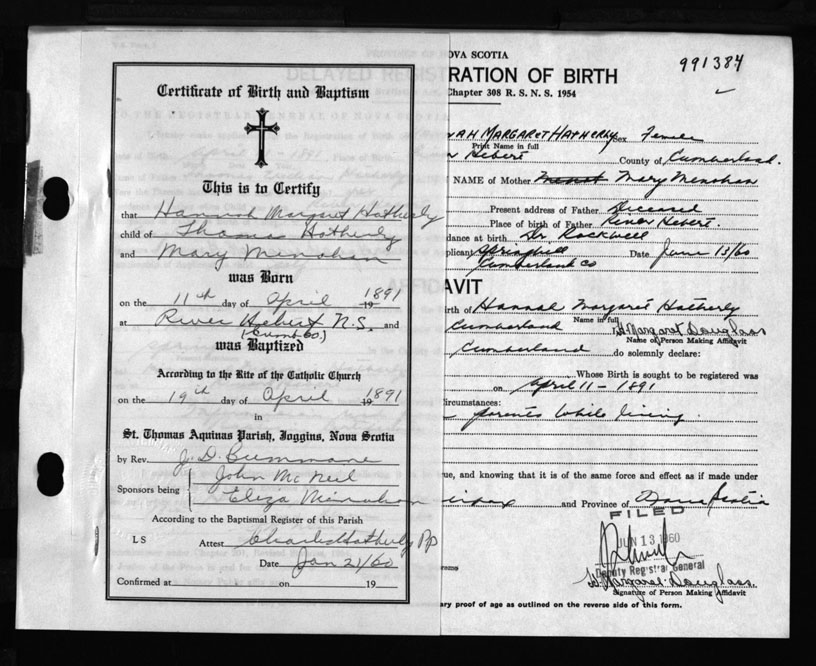 Certificate of Birth and Baptism
This is to Certify
that Hannah Margaret Hatherly
child of Thomas Hatherly
and Mary Minohan
was Born
on the 11th day of April 1891 19
at River Hebert N.S. and
(Cumb Co.)
was Baptized
According to the Rite of the Catholic Church
on the 19th day of April 1891 19
in
St. Thomas Aquinas Parish, Joggins, Nova Scotia
by Rev. J. D.
Sponsors being John McNeil
Eliza Minohan
According to the Baptismal Register of this Parish
L S Attest Charles Hatherly PP
Date Jan 21/60
Confirmed at on 19
OVA SCOTIA
991384
RATION OF BIRTH
Chapter 308 R. S. N. S. 1954
NAH MARGARET HATHERLY Sex Female
Print Name in full
r Hebert County of Cumberland
NAME of Mother Mary Menohan
Present address of Father Deceased
Place of birth of Father River Hebert.
dance at birth Dr. Rockwell
plicant Springhill Date June 13/60
Cumberland Co
AVIT
irth of Hannah Margaret Hatherly
Name in full
Cumberland H. Margaret Douglass
Name of Person Making Affidavit
Cumberland do solemnly declare:
Whose Birth is sought to be registered was
on April 11 - 1891
ircumstances:
parents while living.
ue, and knowing that it is of the same force and effect as if made under
and Province of Nova Scotia
FILED
JUN 13 1960
Deputy Registrar General
H. Margaret Douglass
Signature of Person Making Affidavit
ersons
ary proof of age as outlined on the reverse side of this form.